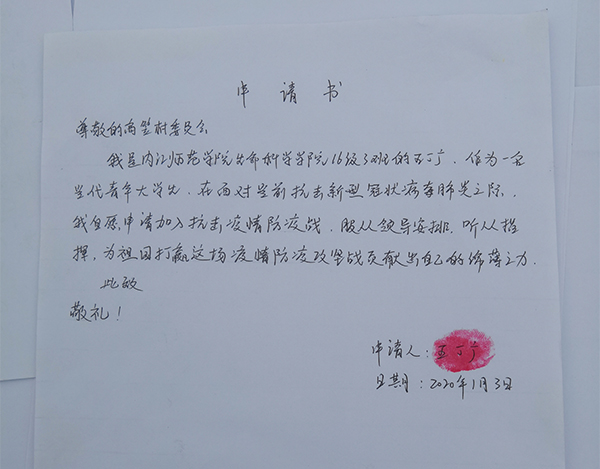 申请书
尊敬的高堂村委员会
我是内江师范学院生命科学学院16级3班的王丁广，作为一名
当代青年大学生，在面对当前抗击新型冠状病毒肺炎之际，
我自愿申请加入抗击疫情防疫战，服从领导安排，听从指
挥，为祖国打赢这场疫情防疫攻坚战贡献出自己的绵薄之力．
此致
敬礼！
申请人：王丁广
日期：2020年1月3日